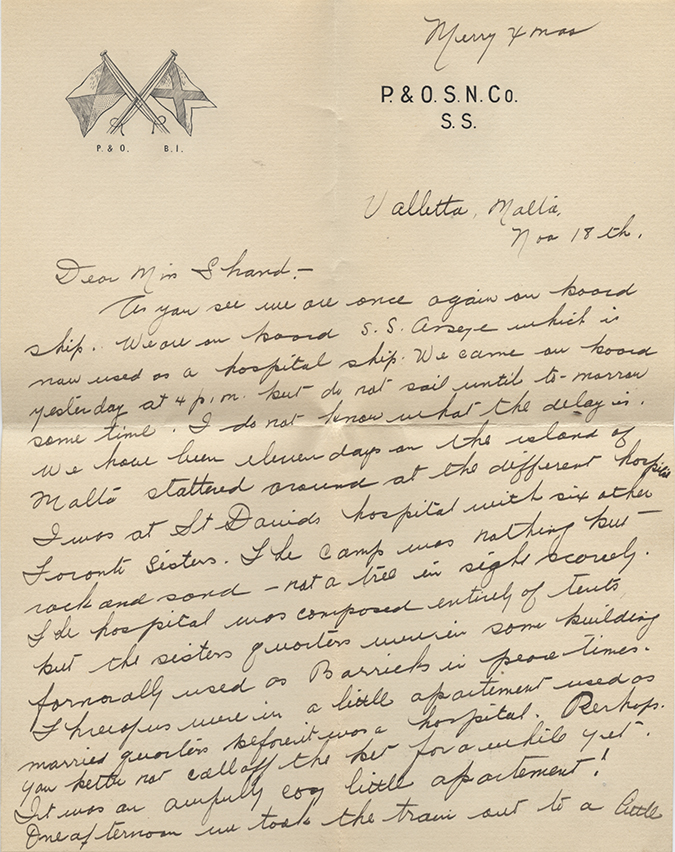 Merry Xmas
P. & O. S. N. Co.
S. S.
P. & O. B. I.
Valletta, Malta,
Nov 18th.
Dear Miss Shand.—
As you see we are once again on board
ship. We are on board S. S. which is
now used as a hospital ship. We came on board
yesterday at 4 p.m. but do not sail until to-morrow
some time. I do not know what the delay is.
We have been eleven days on the island of
Malta stattered around at the different hospitals
I was at St Davids hospital with six other
Toronto Sisters. The camp was nothing but
rock and sand — not a tree in sight scarcely.
The hospital was composed entirely of tents,
but the sisters quarters were in some building
formorally used as Barricks in peace times.
Three of us were in a little apartement used as
married quarters before it was a hospital. Perhaps.
you better not call off the bet for a while yet.
It was an awfully cosy little apartement!
One afternoon we took the train out to a little